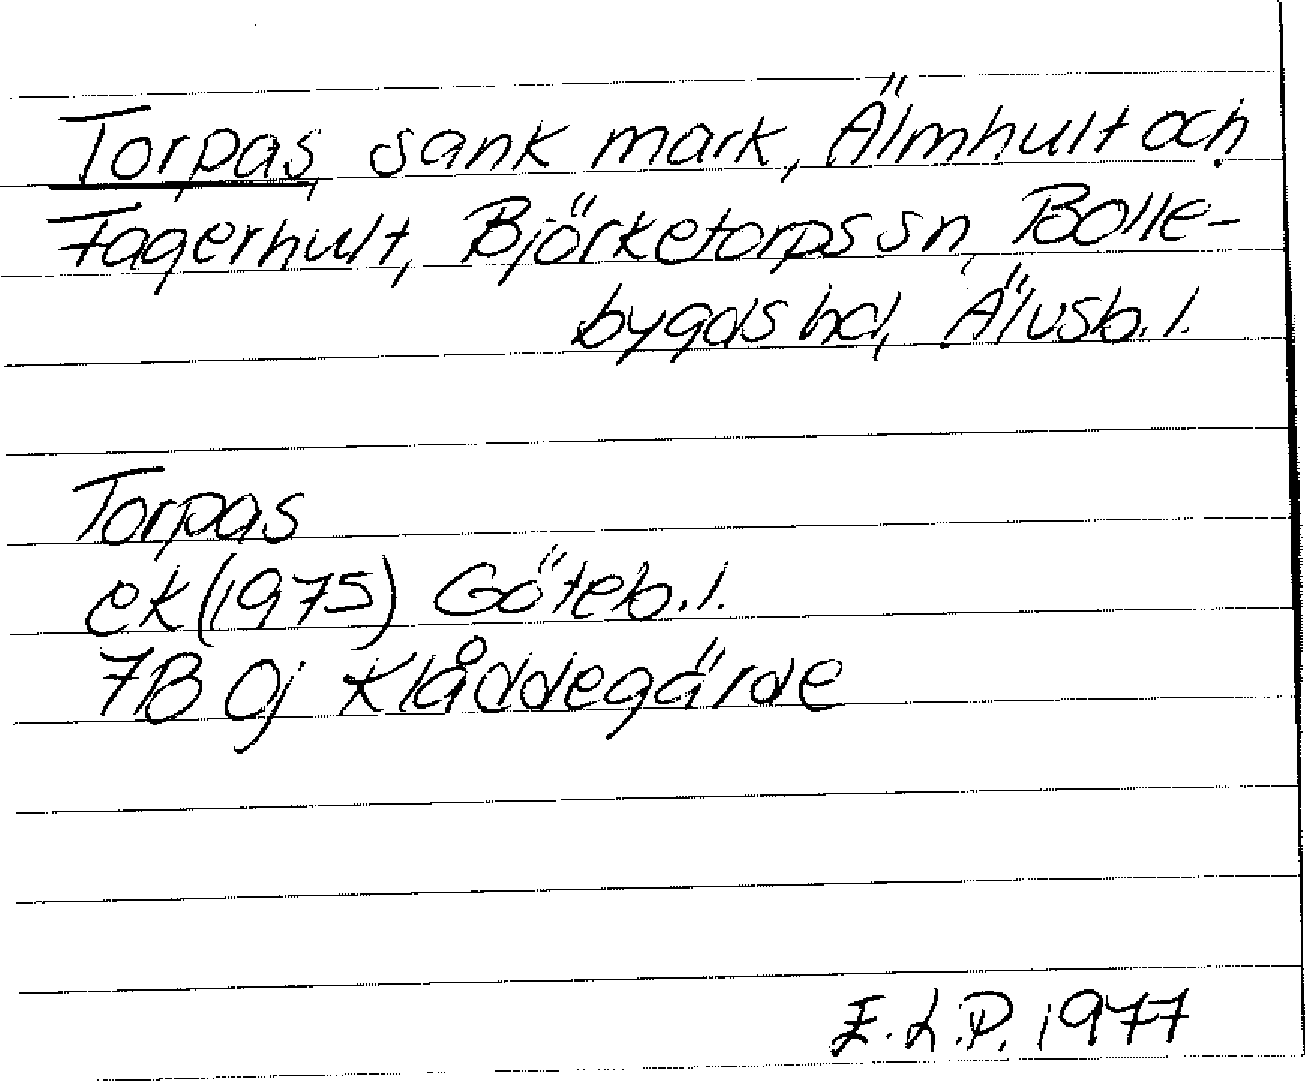 Torpas, sank mark, Älmhult och
Fagerhult, Björketorps sn, Bolle-
bygds hd, Älvsb. l.
Torpas
ek (1975) Göteb. l.
7B 0j Klåddegärde
E.L.P. 1977